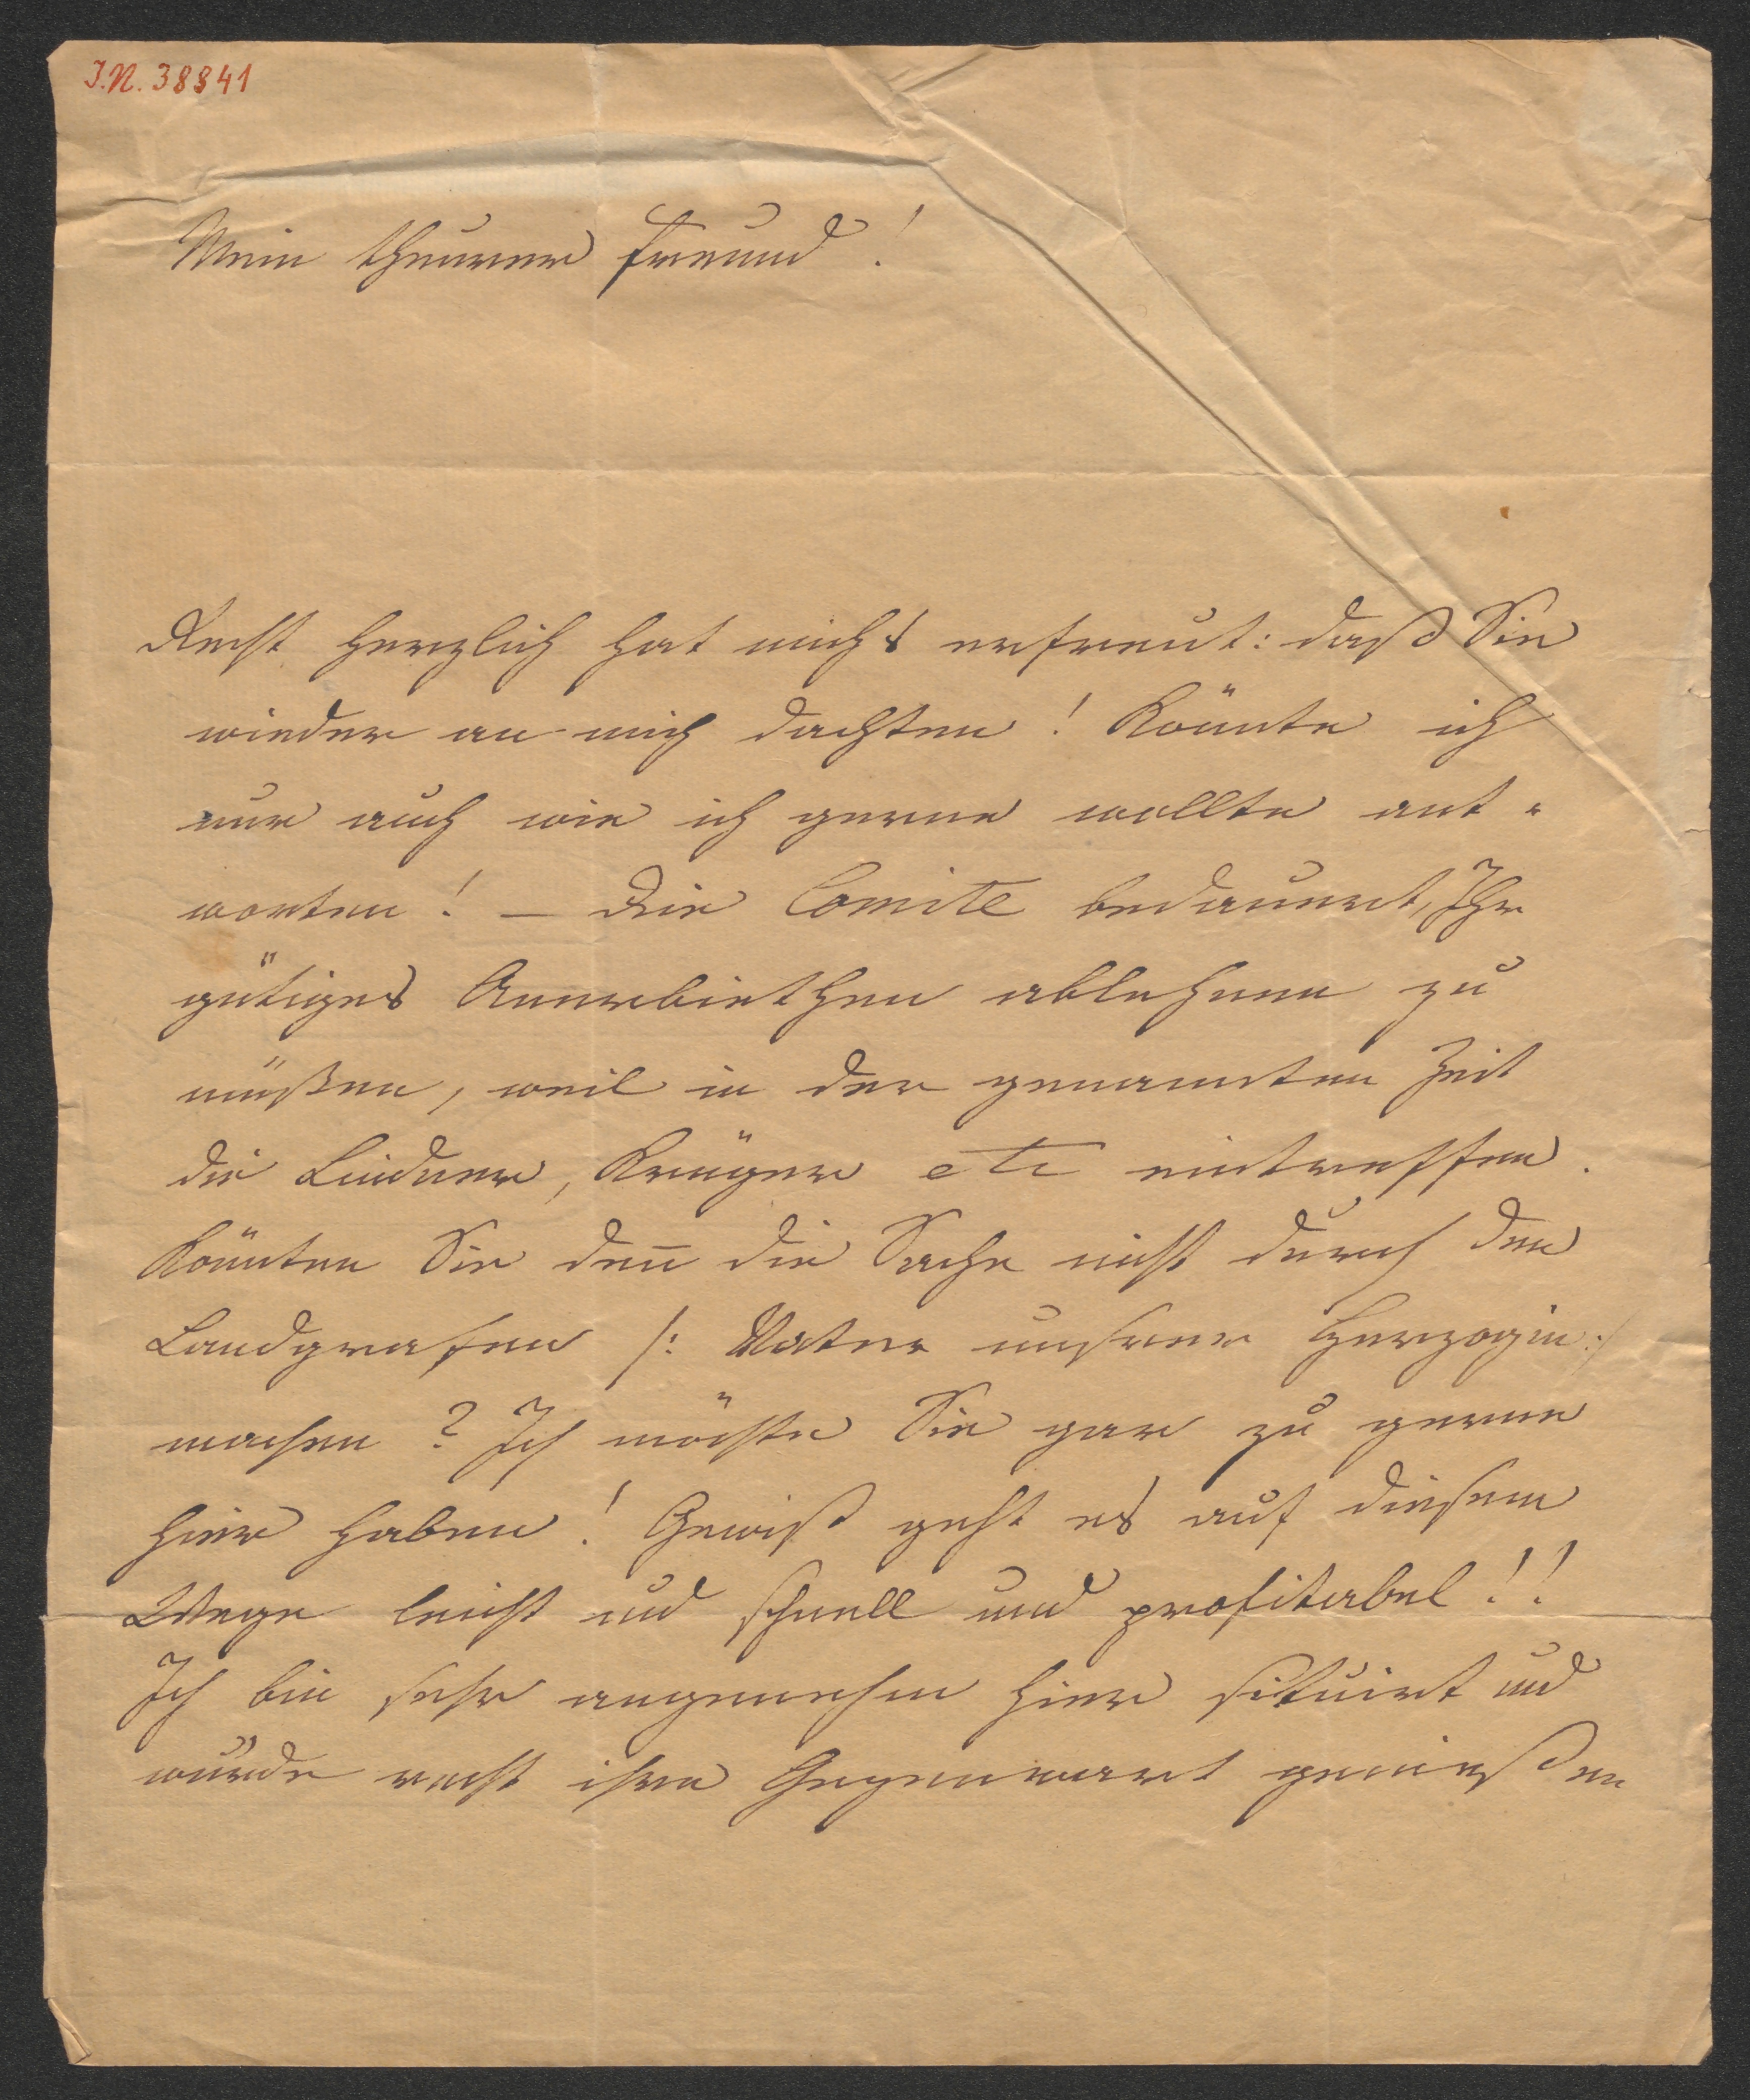 J.N. 38841
Mein theurer Freund!
Recht herzlich hat mich's erfreut: daß Sie
wieder an mich dachten! Könnte ich
nur auch wie ich gerne wollte ant-
worten! – Die Comite bedauert, Ihr
gütiges Anerbiethen ablehnen zu
müßen, weil in der genannten Zeit
die Lindner, Krüger etc eintreffen.
Könnten Sie den̄ die Sache nicht durch den
Landgrafen /: Vater unserer Herzogin :/
machen? Ich möchte Sie gar zu gerne
hier haben! Gewiß geht es auf diesem
Wege leicht und schnell und profitabel!!
Ich bin sehr angenehm hier situirt und
würde recht ihre Gegenwart genießen